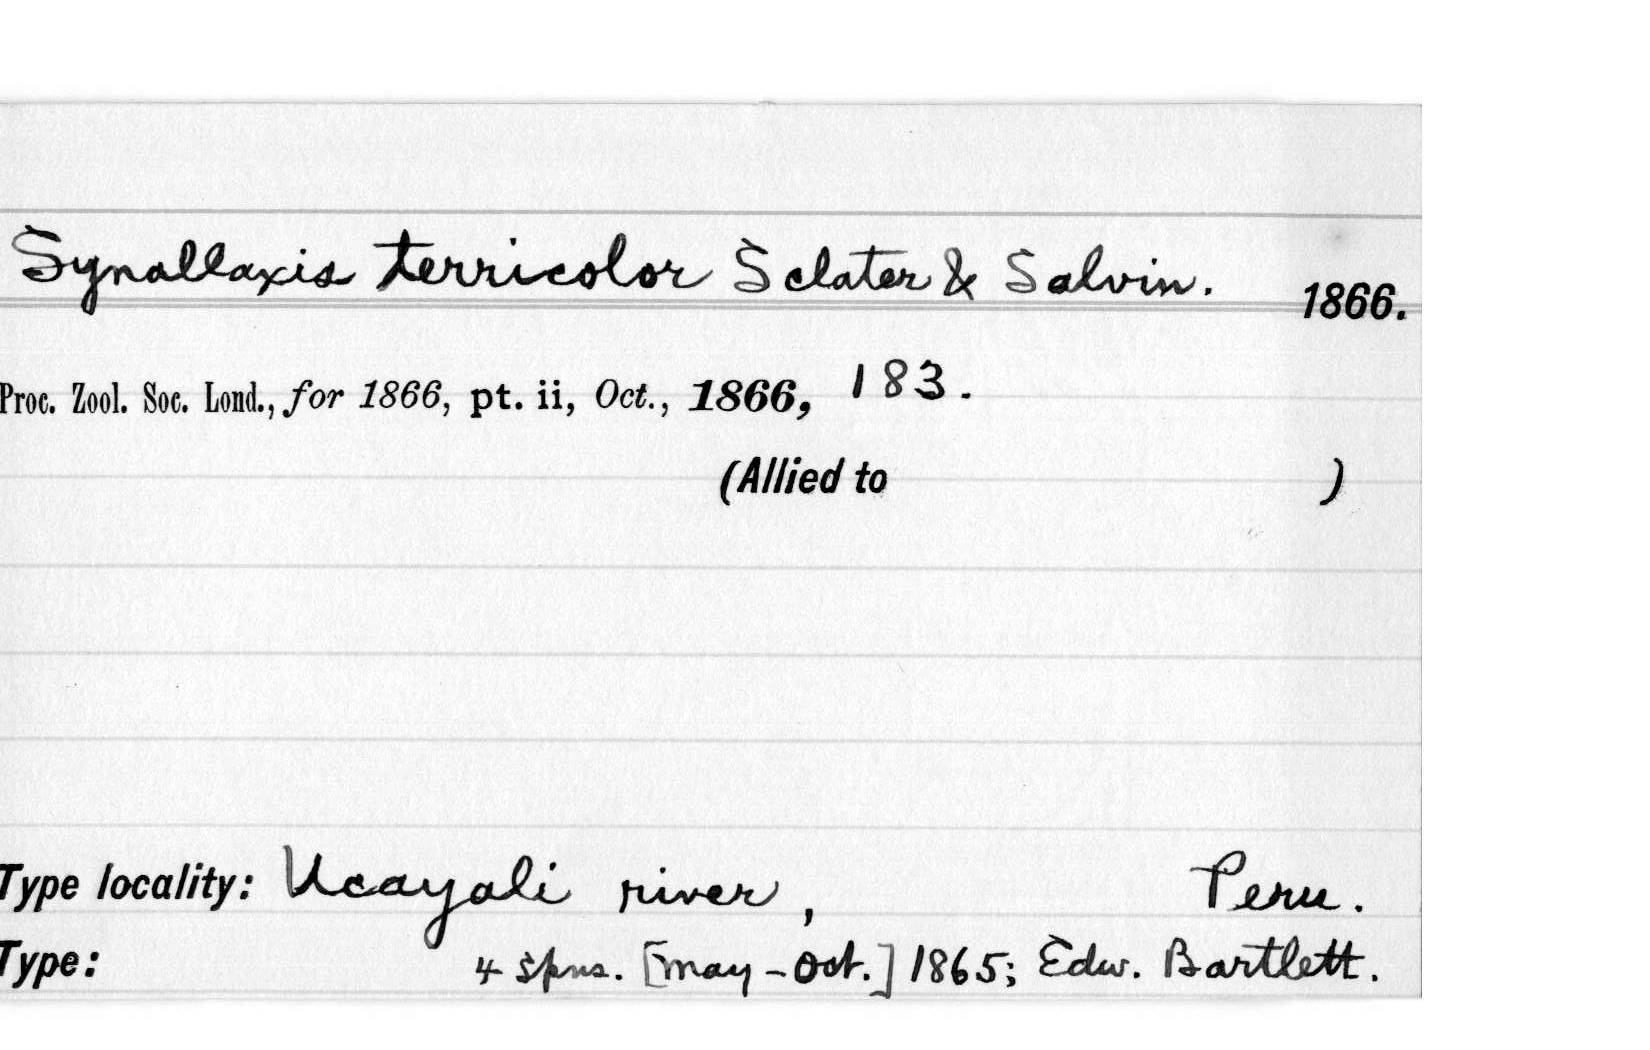 Synallaxis terricolor Sclater & Salvin. 1866.
Proc. Zool. Soc. Lond., for 1866, pt. ii, Oct., 1866, 183.
(Allied to )
Type locality: Ucayali river, Peru.
Type: 4 spns. [May - Oct.] 1865; Edw. Bartlett.